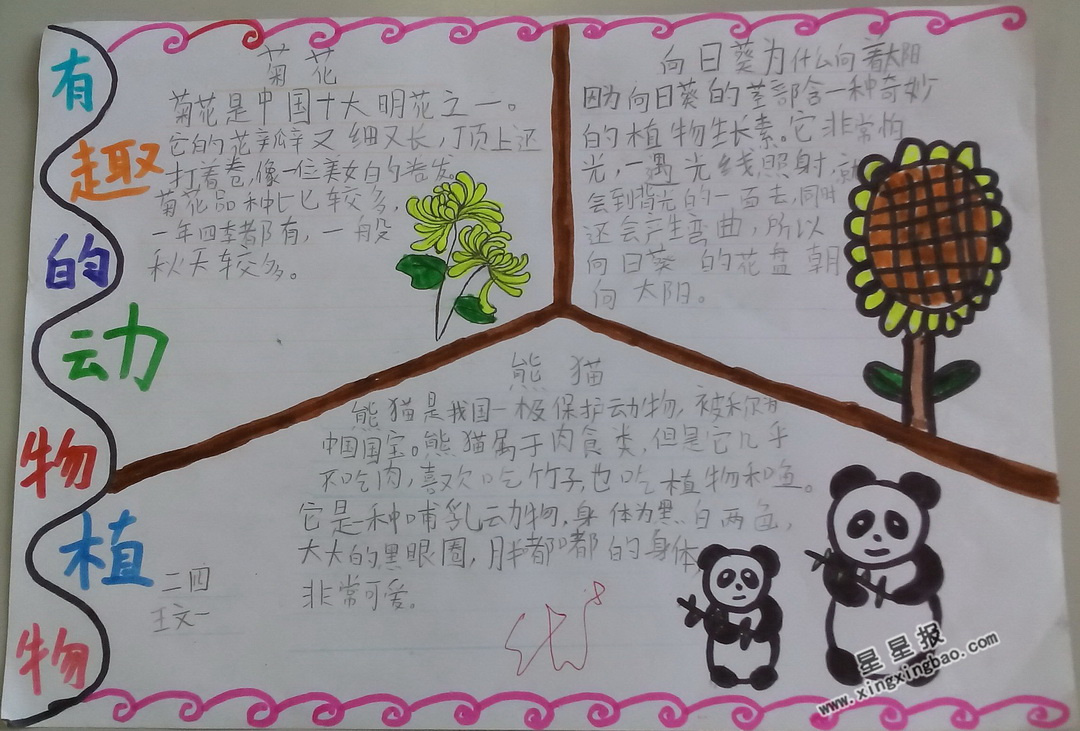 有趣的动物植物
菊花
菊花是中国十大明花之一。
它的花瓣又细又长，顶上还
打着卷，像一位美女白的卷发。
菊花品种比较多，
一年四季都有，一般
秋天较多。
向日葵为什么向着太阳
因为向日葵的茎部含一种奇妙
的植物生长素。它非常怕
光，一遇光线照射，就
会到背光的一面去，同时
还会产生弯曲，所以
向日葵的花盘朝
向太阳。
熊猫
熊猫是我国一极保护动物，被称为
中国国宝。熊猫属于肉食类，但是它几乎
不吃肉，喜欢吃竹子，也吃植物和鱼。
它是一种哺乳动物，身体为黑白两色，
大大的黑眼圈，胖嘟嘟的身体
非常可爱。
二四
王文一
优
星星报
www.xingxingbao.com